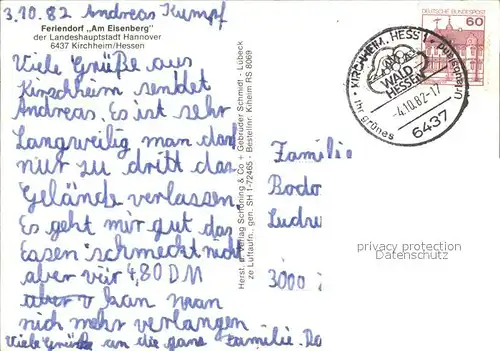 3.10.82 Andreas Kumpf
Feriendorf „Am Eisenberg"
der Landeshauptstadt Hannover
6437 Kirchheim/Hessen
Viele Grüße aus
Kirschheim sendet
Andreas. Es ist sehr
Langweilig man darf
nur zu dritt das
Gelände verlassen.
Es geht mir gut das
Essen schmeckt nicht
aber veir 4,80 DM
aber v kan man
nich mehr verlangen
Viele Grüße an die ganze Familie. Ro
Herst. u. Verlag Schöning & Co + Gebrüder Schmidt, Lübeck
ze Luftaufn., gen. SH 1-72465 - Bestellnr. Kiheim RS 8069
DEUTSCHE BUNDESPOST
60
KIRCHHEIM, HESS 1
WALD
HESSEN
-4.10.82-17
6437
Ihr grünes
Familie
Bodo
Ludw
3000
privacy protection
Datenschutz